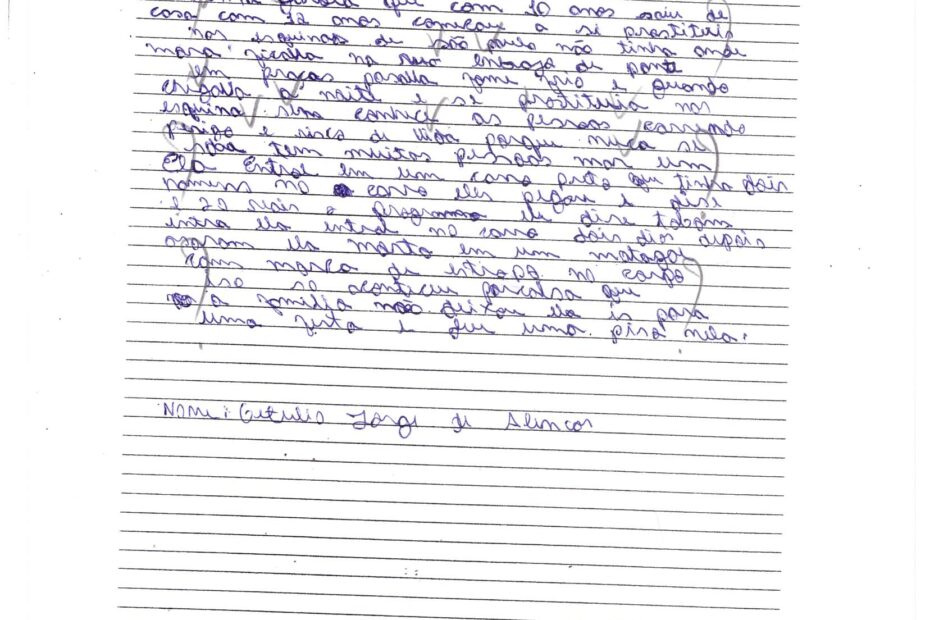 que com 10 anos saiu de
casa com 12 anos começou a se prostituir
nas esquinas de são paulo não tinha onde
mora ficava na rua enbaxo de ponte
em praças pasava fome frio e quando
chegava a noite e se prostituia nas
esquina sem conhece as pessoas correndo
perigo e risco de vida porque nuca se
saba tem muitas pessoas mas um
Ela entrol em um carro preto que tinha dois
homens no carro eles pegou e dise
e 20 reais o programa ela dise tabom
intra ela entrol no carro dois dios depois
acaram ela morta em um matagal
com marca de no corpo
iso so aconticeu porcalsa que
a familia não deixou ela is para
uma festa e deu uma pisa nela.
Nome: Getulio Jorge de Alencar